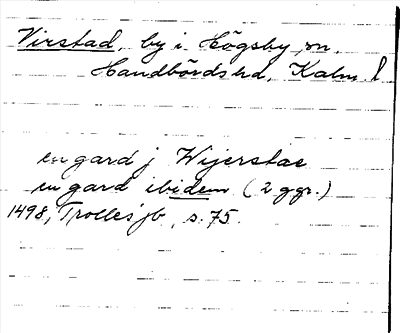 Virstad, by i Högsby sn.
Handbörds hd, Kalm. l
en gard j Wijerstae
en gard ibidem (2 ggr.)
1498, Trolles jb, s. 75.